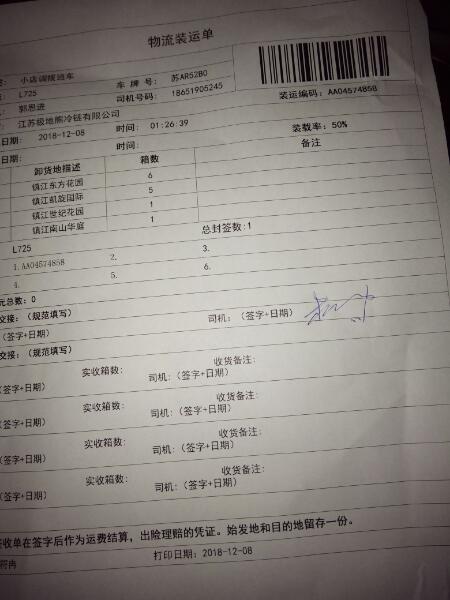 物流装运单
小店调拨通车
L725 车 牌 号: 苏AR52B0
郭思进 司机号码: 18651905245
江苏极地熊冷链有限公司 装运编码: AA04574858
日期: 2018-12-08 时间: 01:26:39
日期: 时间: 装载率: 50%
卸货地描述 箱数 备注
镇江东方花园 6
镇江凯旋国际 5
镇江世纪花园 1
镇江南山华庭 1
L725 总封签数:1
1.AA04574858 2. 3.
4. 5. 6.
元总数: 0
交接: (规范填写) 司机: (签字+日期)
(签字+日期)
交接: (规范填写)
实收箱数: 收货备注:
(签字+日期) 司机: (签字+日期)
实收箱数: 收货备注:
(签字+日期) 司机: (签字+日期)
实收箱数: 收货备注:
(签字+日期) 司机: (签字+日期)
实收箱数: 收货备注:
(签字+日期) 司机: (签字+日期)
收单在签字后作为运费结算, 出险理赔的凭证。始发地和目的地留存一份。
打印日期: 2018-12-08